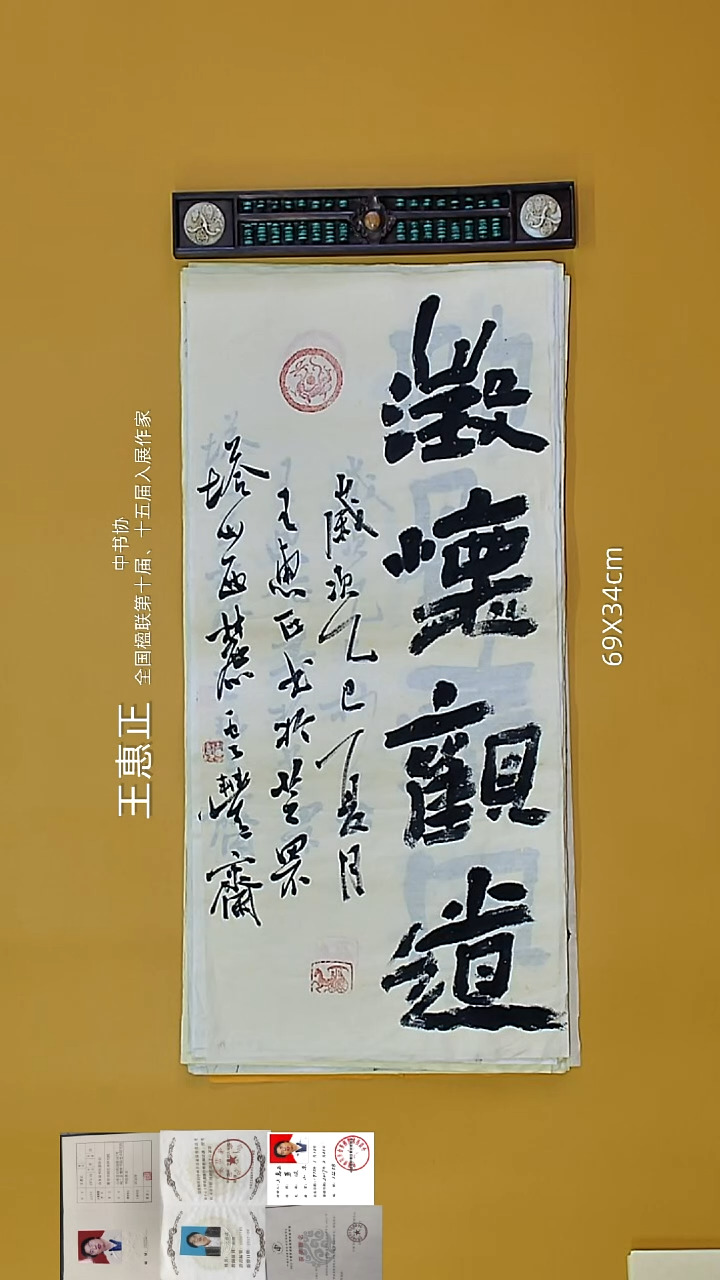 澂懷觀道
歲次乙巳夏月
王惠正书於芝罘
塔山西麓齋
王惠正
中书协
全国楹联第十届、十五届入展作家
69X34cm